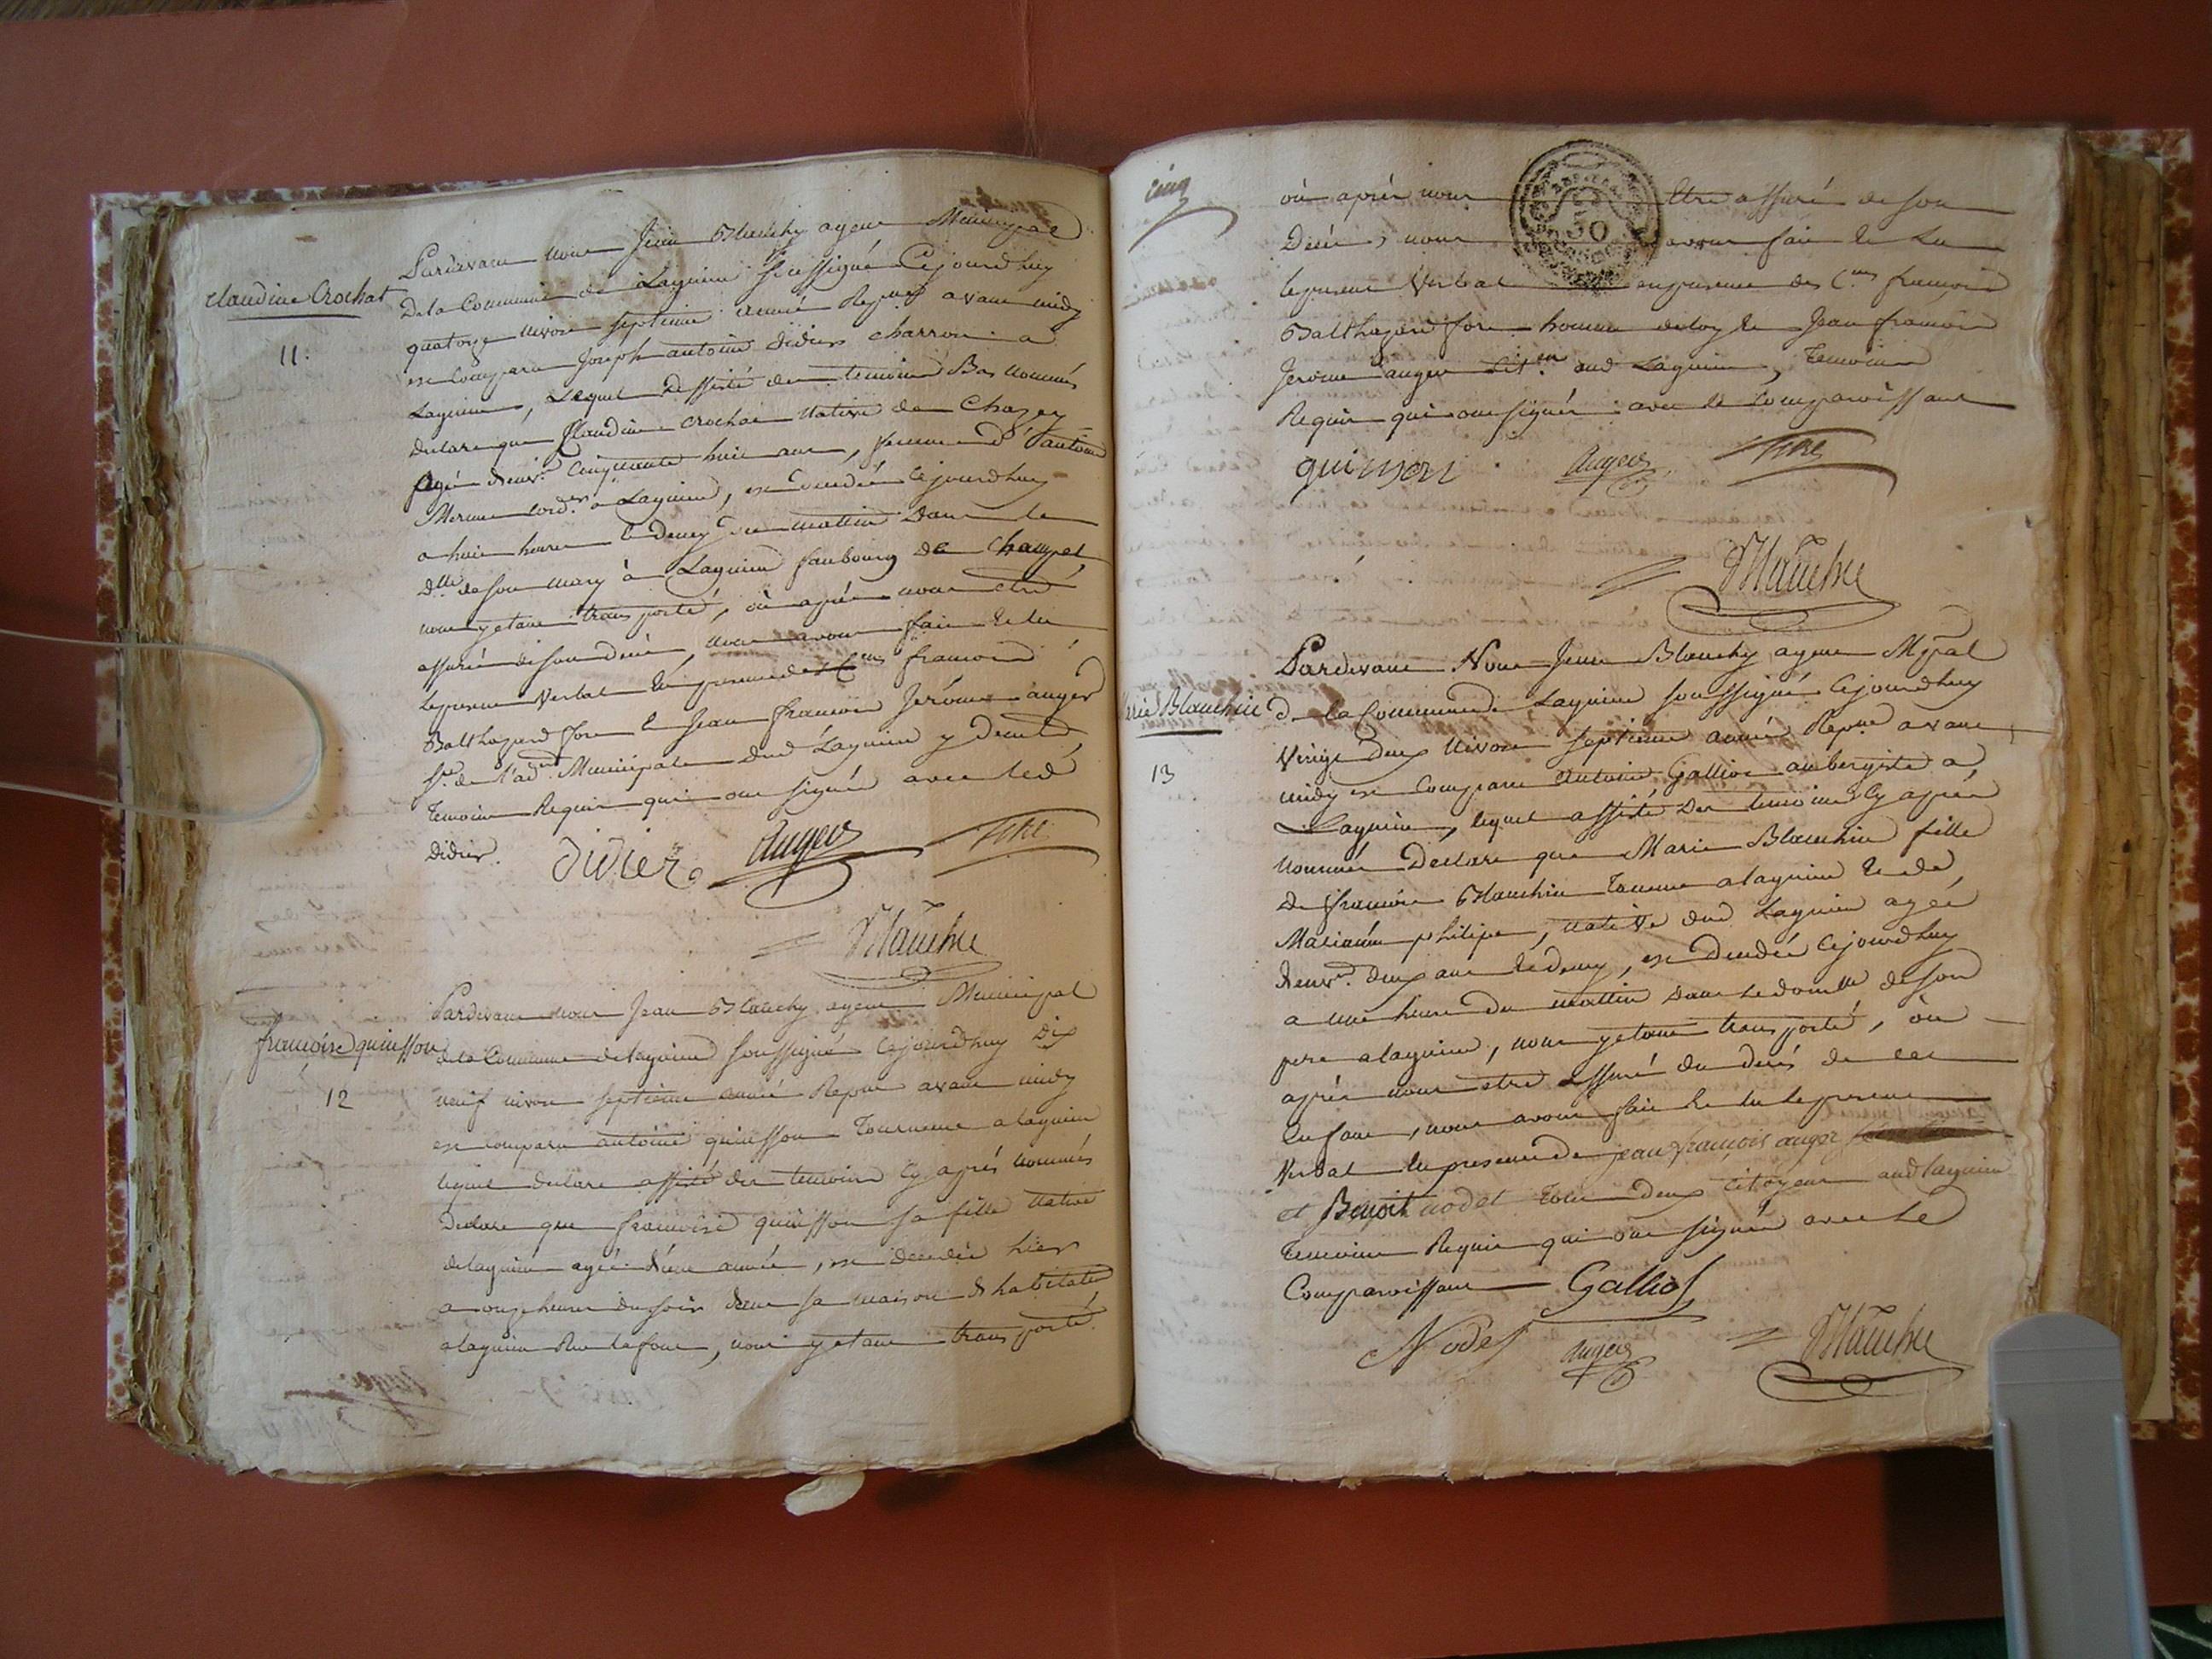 Claudine Crochat
11.
Pardevant nous Jean Blanchy agent Municipal
De la Commune de Lagnieu soussigné Cejourdhuy
quatorze nivose septieme année Repne avant midy
est comparu Joseph antoine Didier charron a
Lagnieu, Lequel assisté des temoins Bas nommés
Declare que Claudine crochat Native de Chazey
agée denvn Cinquante huit ans, femme d'antoine
Mermet cordr a Lagnieu, est decedée cejourdhuy
a huit heures & demy du mattin dans le
dlle de son mary à Lagnieu faubourg de
nous y etant transporté, où après nous etre
assuré de son décés, nous avons fait & lu
le present Verbal en presence des Cens francois
Balthazard fore & Jean francois Jerôme auger
Sre de l'adon Municipale dud Lagnieu y demt
temoins Requis qui ont signés avec led
Didier.
Didier Auger fore
Blanchy
francoise quinsson
12
Pardevant nous Jean Blanchy agent Municipal
de la Commune de lagnieu soussigné Cejourdhuy Dix
neuf nivose septieme année Repne avant midy
est comparu antoine quinsson a lagnieu
lequel declare assisté des temoins cy aprés nommés
Declare que francoise quinsson sa fille native
de lagnieu agée d'une année, est decedée hier
a onze heures du soir dans sa maison d habitation
a lagnieu Rue lafont, nous y etant transporté
cinq
où après nous Etre assuré de son
Décés, nous avons fait & Lu
le present Verbal en presence des Cens francois
Balthazard fore homme de loy & Jean francois
Jerome auger Citens aud Lagnieu, temoins
Requis qui ont signés avec le Comparoissant
quinson Auger fore
Blanchy
Marie Blanchin
13
Pardevant Nous Jean Blanchy agent Mpal
de la Commune de Lagnieu soussigné Cejourdhuy
Vingt deux Nivose septieme année Repne avant
midy est Comparu Antoine Galliot aubergiste a
Lagnieu, lequel assisté des temoins Cy après
nommés Declare que Marie Blanchin fille
de francois Blanchin a lagnieu & de
philipe, native dud Lagnieu agée
denvn deux ans & demy, est decedée Cejourdhuy
a une heure du mattin dans le domlle de son
pere a lagnieu, nous y etant transporté, où
après nous etre assuré du decés de cet
Enfant, nous avons fait & lu le present
Verbal en presence de jean françois auger
et Benoit nodet tous deux Citoyens aud lagnieu
temoins Requis qui ont signés avec Le
Comparoissant Galliot
Nodet Auger Blanchy